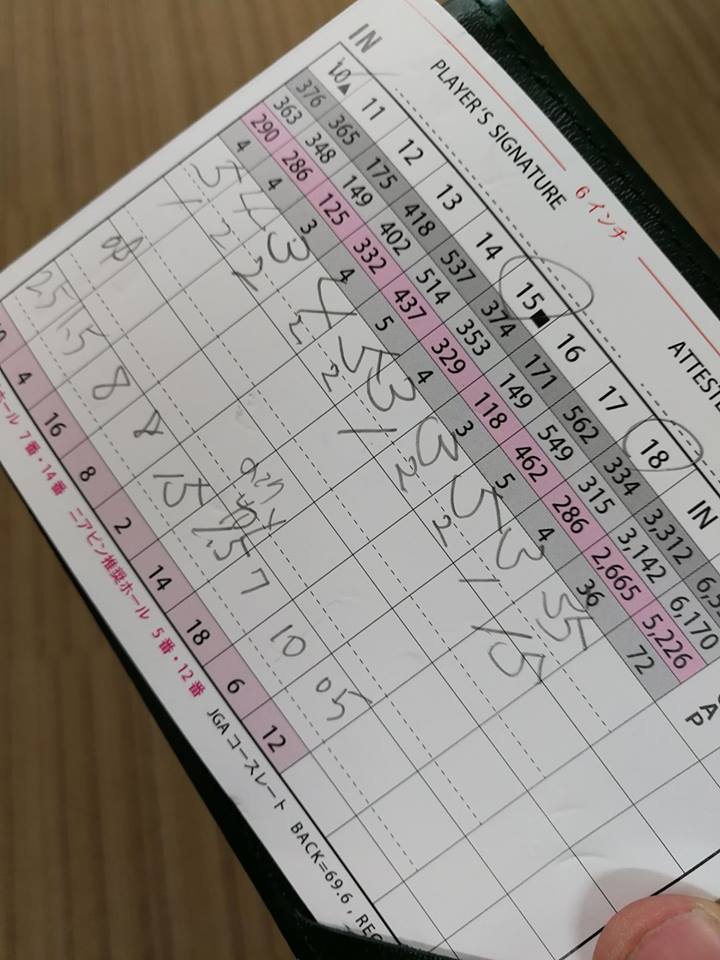 PLAYER'S SIGNATURE
6インチ
ATTESTE
IN 10▲ 11 12 13 14 15■ 16 17 18 IN
376 365 175 418 537 374 171 562 334 3,312 6,5
363 348 149 402 514 353 149 549 315 3,142 6,170
290 286 125 332 437 329 118 462 286 2,665 5,226
4 4 3 4 5 4 3 5 4 36 72
5 4 3 4 5 3 3 5 3 35
1 2 2 2 2 1 2 2 1 15
op
25 1.5 8 8 15 7.5 7 10 05
4 16 8 2 14 18 6 12
ホール 7番・14番 ニアピン推奨ホール 5番・12番
JGA コースレート BACK=69.6 , REG